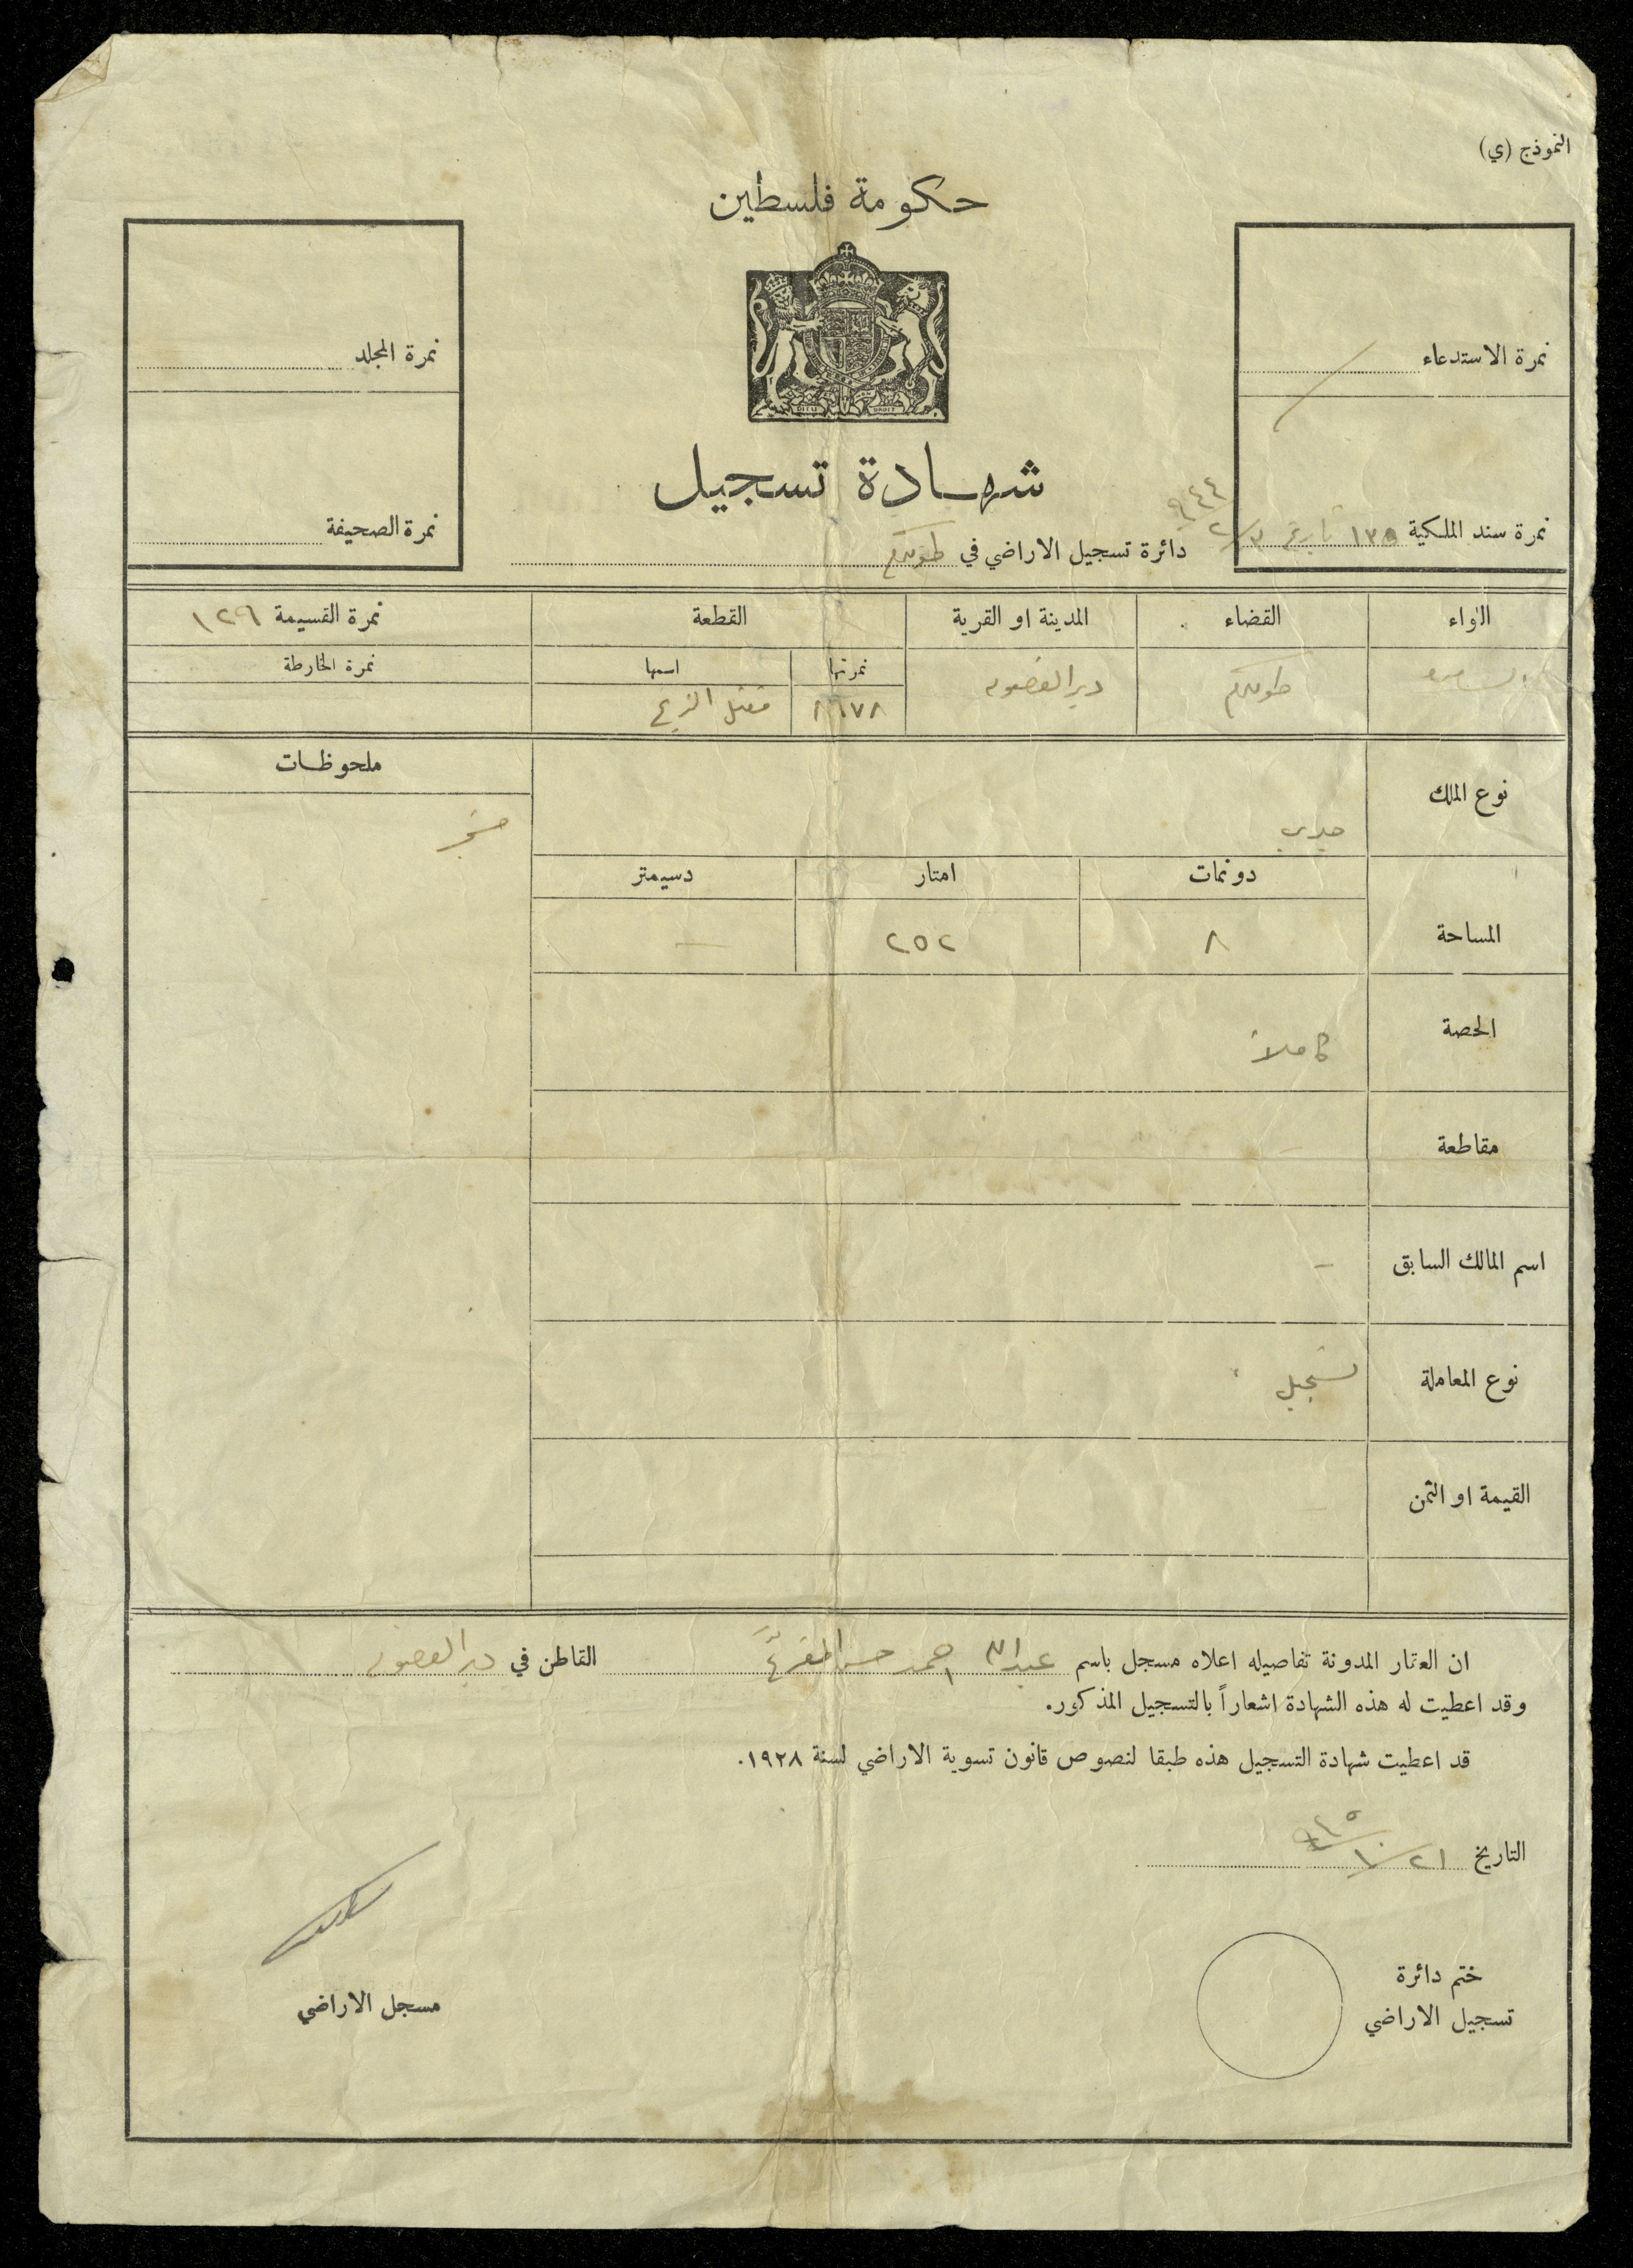 النموذج (ي)
حكومة فلسطين
DIEU DROIT
نمرة الاستدعاء
نمرة المجلد
شهادة تسجيل
نمرة سند الملكية ١٣٥ تاريخ ٩٤٤
نمرة الصحيفة
دائرة تسجيل الاراضي في طولكرم
اللواء القضاء المدينة او القرية القطعة نمرة القسيمة ١٢٩
نمرتها اسمها نمرة الخارطة
السامرة طولكرم دير الغصون ٨٦٧٨
ملحوظات
نوع الملك
ميري
دونمات امتار دسيمتر
المساحة ٨ ٢٥٢ —
الحصة كاملاً
مقاطعة
اسم المالك السابق —
نوع المعاملة تسجيل
القيمة او الثمن
ان العقار المدونة تفاصيله اعلاه مسجل باسم عبدالله احمد حسن القاطن في دير الغصون
وقد اعطيت له هذه الشهادة اشعاراً بالتسجيل المذكور.
قد اعطيت شهادة التسجيل هذه طبقا لنصوص قانون تسوية الاراضي لسنة ١٩٢٨.
التاريخ ٢١/١٠
ختم دائرة
تسجيل الاراضي
مسجل الاراضي